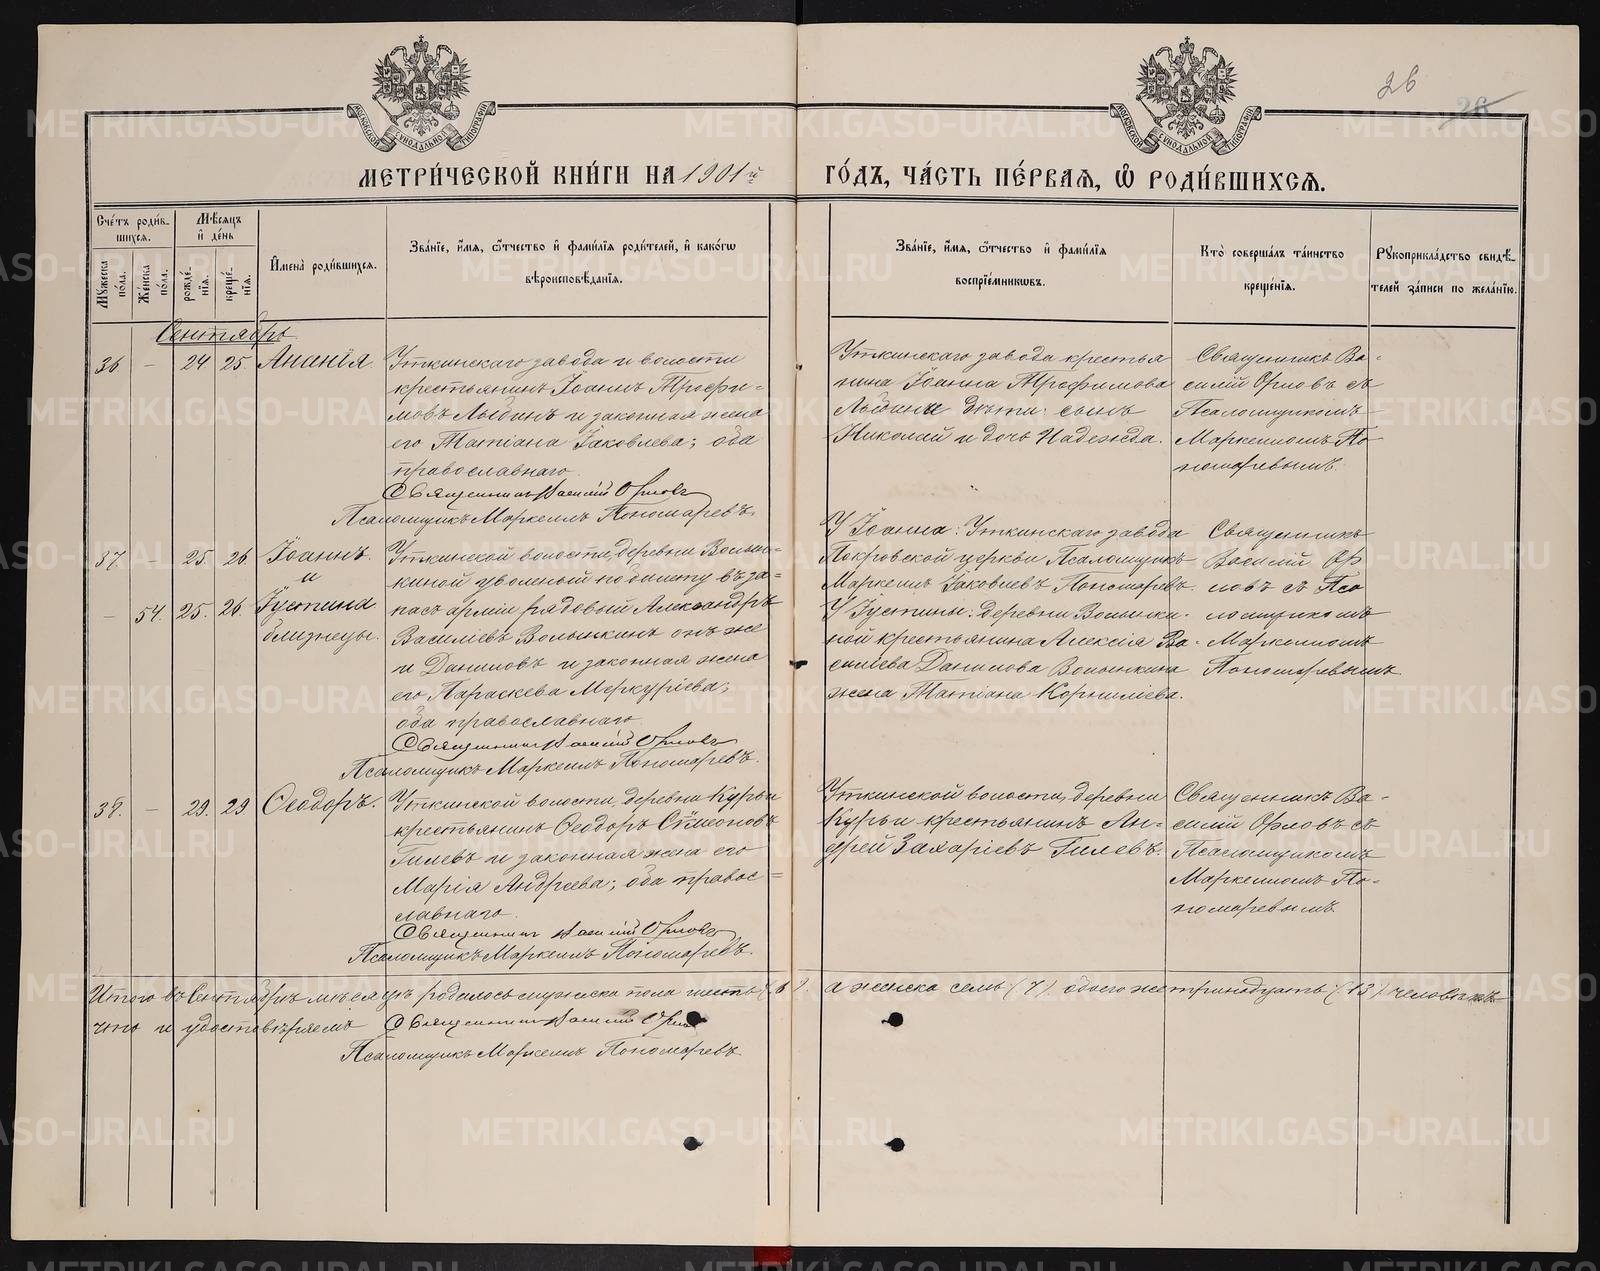 26
26
МОСКОВСКОЙ СУНОДАЛЬНОЙ ТИПОГРАФІИ
МОСКОВСКОЙ СУНОДАЛЬНОЙ ТИПОГРАФІИ
МЕТРИ́ЧЕСКОЙ КНИ́ГИ НА 1901й ГО́ДЪ, ЧА́СТЬ ПЕ́РВАѦ, Ѡ РОДИ́ВШИХСѦ.
Сче́тъ роди́в-
шихся.
Мꙋ́жеска по́ла.
Же́нска по́ла.
Мѣ́сяцъ
и҆ де́нь
рожде́-
нїѧ.
креще́-
нїѧ.
И҆мена̀ роди́вшихся.
Зва́нїе, и҆́мѧ, ѻ҆́тчество и҆ фами́лїѧ роди́телей, и҆ како́гѡ
вѣроисповѣ́данїѧ.
Зва́нїе, и҆́мѧ, ѻ҆́тчество и҆ фами́лїѧ
воспрїе́мникѡвъ.
Кто̀ соверша́лъ та́инство
креще́нїѧ.
Рꙋкоприкла́дство свидѣ́-
телей за́писи по жела́нїю.
Сентябрь
36 — 24 25 Ананія.
Уткинскаго завода и волости
крестьянинъ Іоаннъ Трофи-
мовъ Лыбинъ и законная жена
его Татіана Іаковлева; оба
православнаго.
Священникъ Василій Орловъ
Псаломщикъ Маркеллъ Пономаревъ.
Уткинскаго завода крестья
нина Іоанна Трофимова
Лыбина дѣти: сынъ
Николай и дочь Надежда.
Священникъ Ва-
силій Орловъ съ
Псаломщикомъ
Маркелломъ По-
номаревымъ.
37. — 25. 26 Іоаннъ
и
— 54. 25. 26. Іустина
близнецы.
Уткинской волости, деревни Волын-
киной уволеный по билету въ за-
пасъ арміи рядовый Александръ
Василіевъ Волынкинъ онъ же
и Даниловъ и законная жена
его, Параскева Меркуріева;
оба православнаго.
Священникъ Василій Орловъ
Псаломщикъ Маркеллъ Пономаревъ.
У Іоанна: Уткинскаго завода
Покровской церкви Псаломщикъ
Маркеллъ Іаковлевъ Пономаревъ.
У Іустины: деревни Волынки-
ной крестьянина Алексія Ва-
силіева Данилова Волынкина
жена Татіана Корниліева.
Священникъ
Василій Ор
ловъ съ Пса
ломщикомъ
Маркелломъ
Пономаревымъ.
38. — 29. 29 Ѳеодоръ.
Уткинской волости, деревни Курьи
крестьянинъ Ѳеодоръ Сѵмеоновъ
Гилевъ и законная жена его
Марія Андреева; оба правос-
лавнаго.
Священникъ Василій Орловъ
Псаломщикъ Маркеллъ Пономаревъ.
Уткинской волости, деревни
Курьи крестьянинъ Ан-
дрей Захаріевъ Гилевъ.
Священникъ Ва-
силій Орловъ съ
Псаломщикомъ
Маркелломъ По-
номаревымъ.
Итого въ Сентябрѣ мѣсяцѣ родилось мужска пола шесть (6). а женска семь (7) обоего же тринадцать (13) человѣкъ
что и удостовѣряемъ Священникъ Василій Орловъ
Псаломщикъ Маркеллъ Пономаревъ.
METRIKI.GASO-URAL.RU